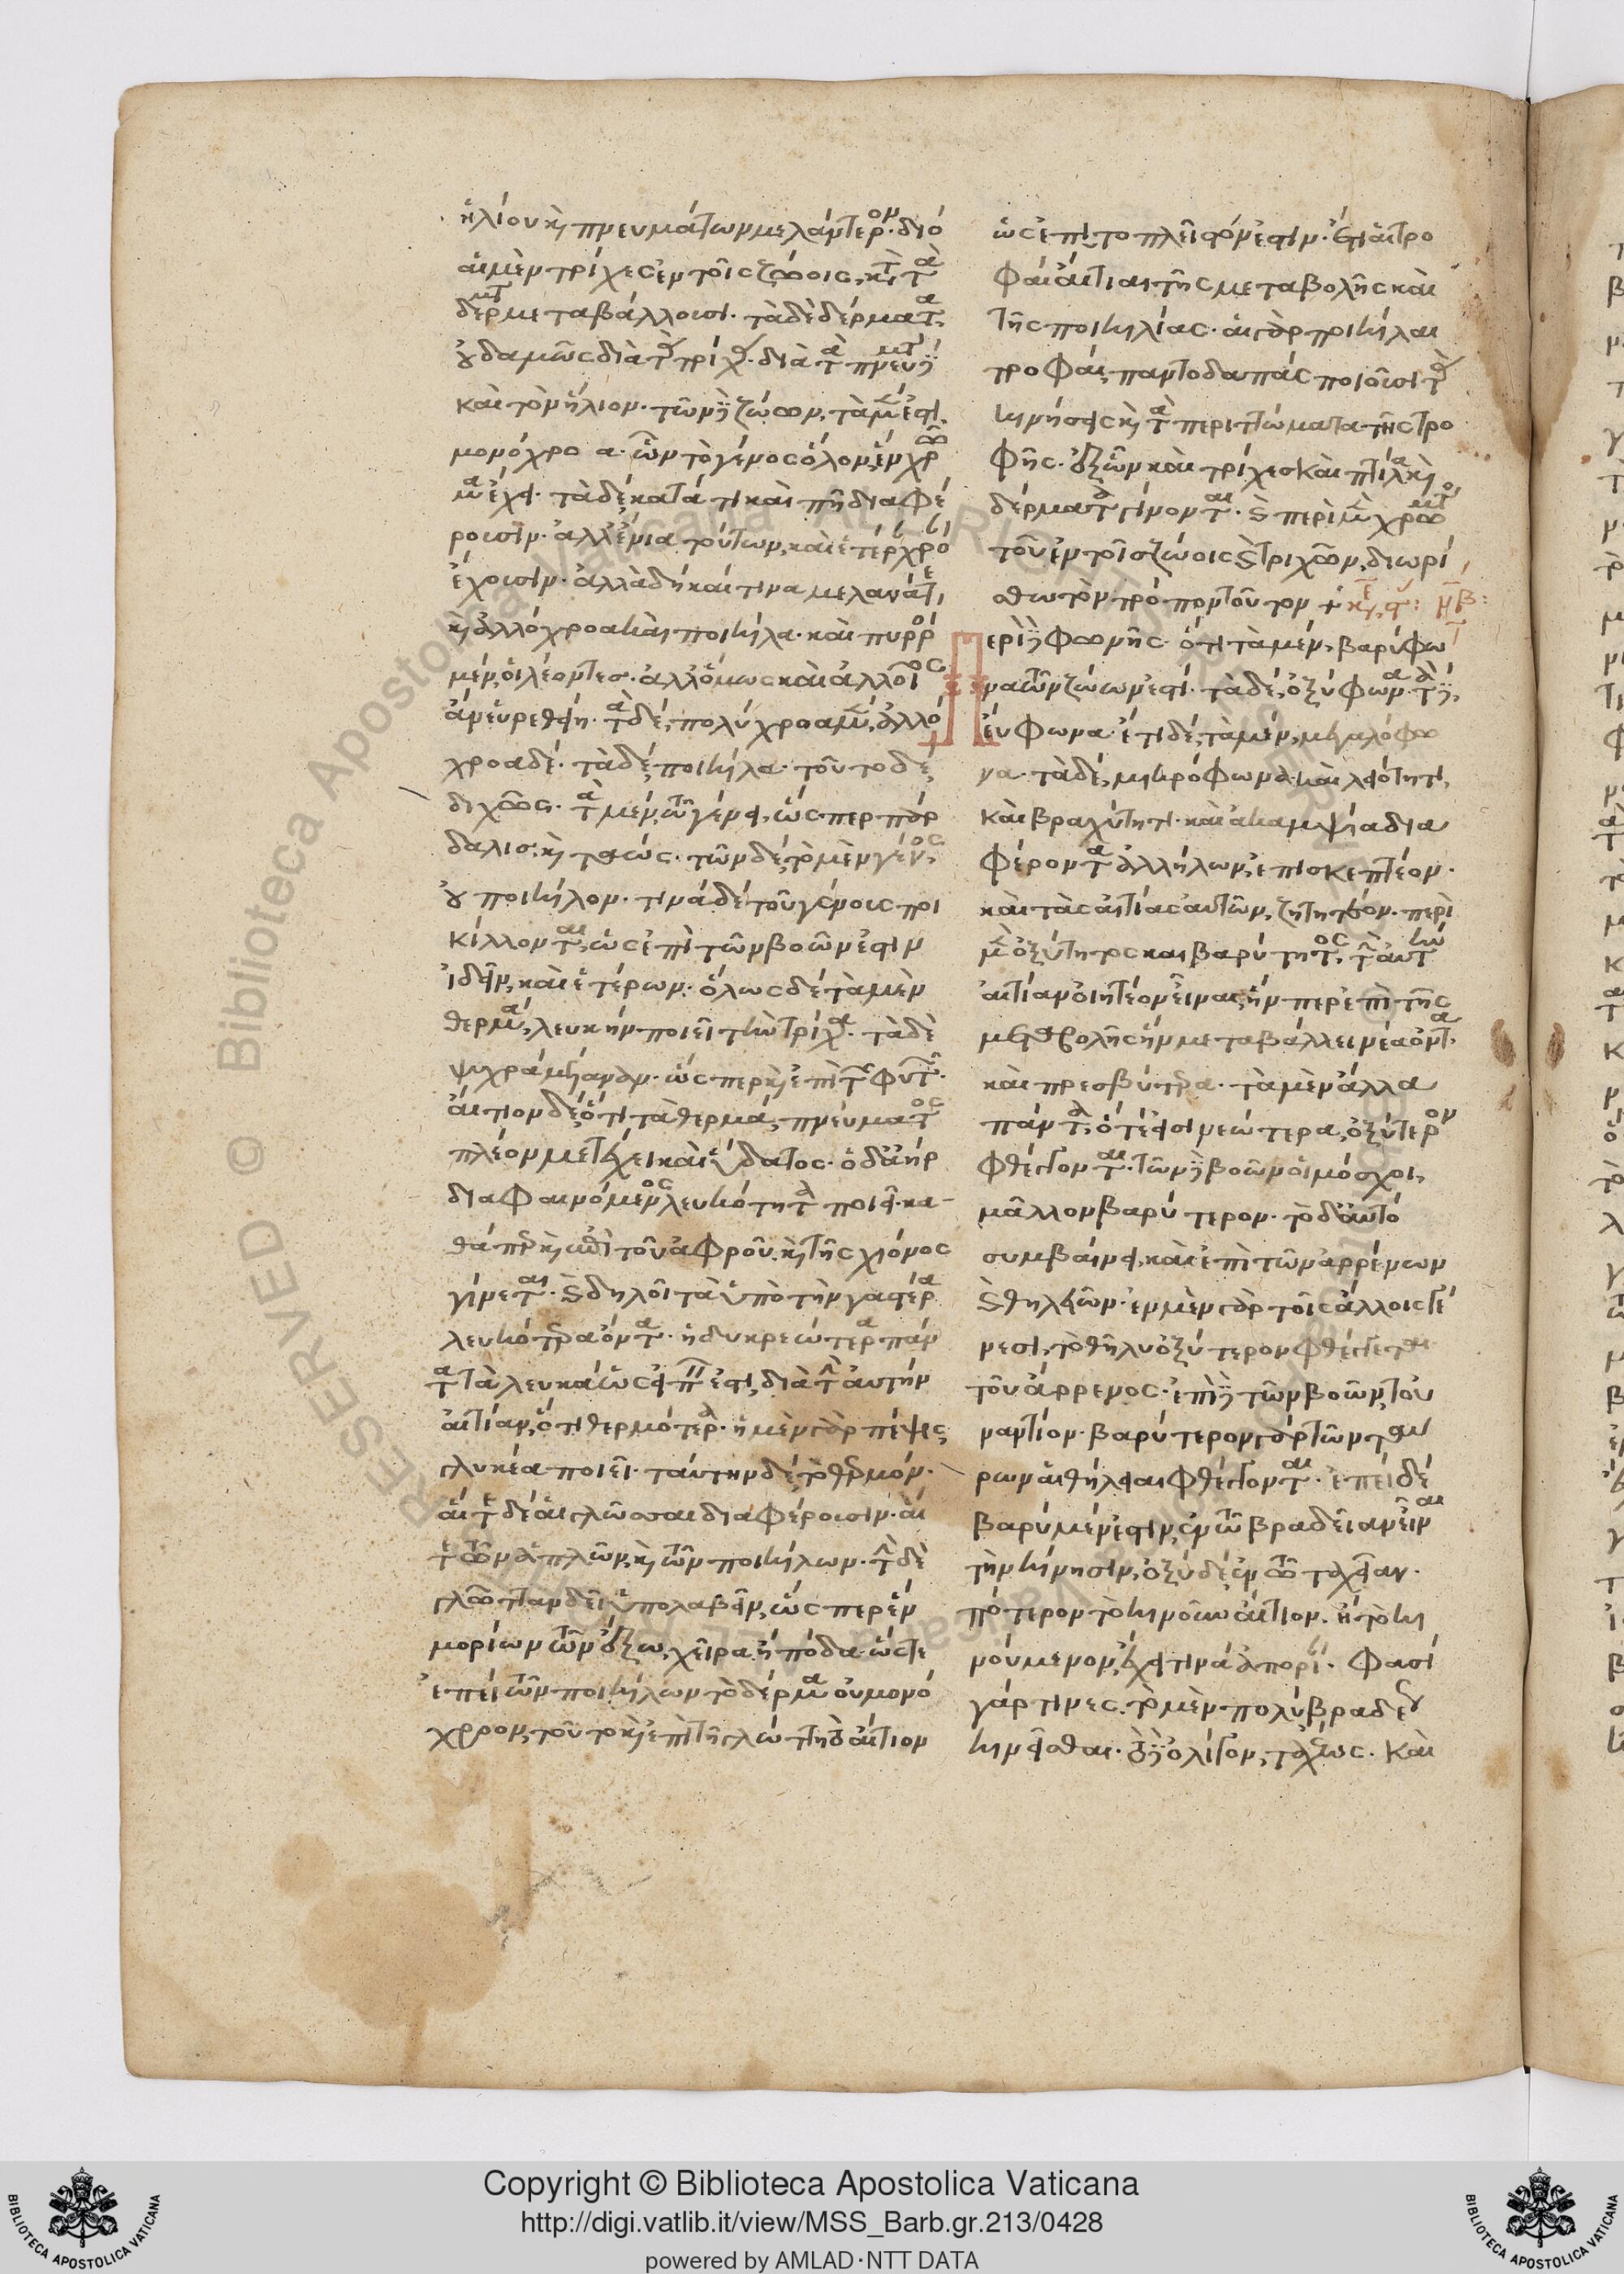 ἡλίου κ πνευμάτων μελάντερον· διὸ
αἱ μὲν τρίχες ἐν τοῖς ζώοις, κτ τὰ
δέρμτ μεταβάλλουσι. τὰ δὲ δέρματα,
οὐδαμῶς διὰ τ τρίχ. διὰ τὰ πνευμτ
καὶ τὸν ἥλιον. τῶν δὲ ζώων, τὰ μ ἐστι
μονόχροα. ὧν τὸ γένος ὅλον, ἓν χρῶ
μα ἔχει. τὰ δέ, κατά τι καὶ πῆ διαφέ
ρουσιν. ἀλλ' ἔνια τούτων, καὶ ἑτερ χρό
ἔχουσιν. ἀλλὰ δὴ καί τινα μελανάτ,
κ ἀλλόχροα καὶ ποικίλα. καὶ πυρρο
μέν, οἱ λέοντες. ἀλλ' ὅμως καὶ ἀλλοῖος
ἀνευρεθείη. τὰ δέ, πολύχροα μ, ἀλλό
χροα δέ. τὰ δέ, ποικίλα. τοῦτο δὲ,
διχῶς. τὰ μέν, τῶ γένει, ὥσπερ πάρ
δαλις, κ ταώς. τῶν δέ, τὸ μὲν γένος,
οὐ ποικίλον. τινὰ δὲ τοῦ γένους ποι
κίλλονται, ὡς ἐπὶ τῶν βοῶν ἐστιν
ἰδεῖν, καὶ ἑτέρων. ὅλως δὲ τὰ μὲν
θερμα, λευκὴν ποιεῖ τὴν τρίχα. τὰ δὲ
ψυχρά, μέλαιναν. ὥσπερ κ ἐπὶ τ φυτ.
αἴτιον δέ, ὅτι τὰ θερμά, πνεύματος
πλέον μετέχει καὶ ὕδατος. ὁ δ' ἀὴρ
διαφαινόμενος λευκότητα ποιεῖ. κα-
θάπερ κ ἐπὶ τοῦ ἀφροῦ, κ τῆς χιόνος
γίνεται. δηλοῖ τὰ ὑπὸ τὴν γαστέρα
λευκότερα ὄντα. ἡδυκρεώτερα πάν
τα τὰ λευκὰ ὡς εἰπ ἐστι, διὰ τ αὐτὴν
αἰτίαν, ὅτι θερμότερα. ἡ μὲν γὰρ πέψις
γλυκέα ποιεῖ. ταύτην δέ, τὸ θερμόν.
αἵ τε δὲ αἱ γλῶσσαι διαφέρουσιν. αἵ
τε τῶν ἁπλῶν, κ τῶν ποικίλων. τ δὲ
γλῶτταν δεῖ ὑπολαβεῖν, ὥσπερ ἓν
μορίων τῶν ἔξω, χεῖρα ἢ πόδα. ὥστε
ἐπεὶ τῶν ποικίλων τὸ δέρμα οὐ μονό
χρουν, τοῦτο κ ἐπὶ τῆς γλώττης αἴτιον
ὡς ἐπὶ τὸ πλεῖστόν ἐστιν. ἔτι αἱ τρο
φαὶ αἴτιαι τῆς μεταβολῆς καὶ
τῆς ποικιλίας. αἱ γὰρ ποικίλαι
τροφαί, παντοδαπὰς ποιοῦσι τ
κινήσεις κ τὰ περιττώματα τῆς τρο
φῆς. ἐξ ὧν καὶ τρίχες καὶ πτίλα κ
δέρματα γίνονται. περὶ μ χρωμτ
τοῦ ἐν τοῖς ζώοις τριχῶν, διωρί
σθω τὸν τρόπον τοῦτον +
ερὶ δὲ φωνῆς. ὅτι τὰ μέν, βαρύφω
να τῶν ζώων ἐστί. τὰ δέ, ὀξύφωνα. τὰ δὲ,
εὔφωνα. ἔτι δέ, τὰ μέν, μεγαλόφω
να. τὰ δέ, μικρόφωνα. καὶ λειότητι,
καὶ βραχύτητι. καὶ ἀκαμψία δια
φέροντα ἀλλήλων, ἐπισκεπτέον.
καὶ τὰς αἰτίας αὐτῶν, ζητητέον. περὶ
μ ὀξύτητος καὶ βαρύτητος, τ αὐτὴν
αἰτίαν οἰητέον εἶναι, ἥν περ ἐπὶ τῆς
μεταβολῆς ἣν μεταβάλλει νέα ὄντα
καὶ πρεσβύτερα. τὰ μὲν ἄλλα
πάντα, ὅτε εἰσὶ νεώτερα, ὀξύτερον
φθέγγονται. τῶν δὲ βοῶν οἱ μόσχοι,
μᾶλλον βαρύτερον. τὸ δ' αὐτὸ
συμβαίνει, καὶ ἐπὶ τῶν ἀρρένων
θηλειῶν. ἐν μὲν γὰρ τοῖς ἄλλοις γέ
νεσι, τὸ θῆλυ ὀξύτερον φθέγγεται
τοῦ ἄρρενος. ἐπὶ δὲ τῶν βοῶν, τοὐ
ναντίον. βαρύτερον γὰρ τῶν ταύ
ρων αἱ θήλειαι φθέγγονται. ἐπεὶ δὲ
βαρὺ μέν ἐστιν, ἐν τῶ βραδεῖαν εἶναι
τὴν κίνησιν, ὀξὺ δὲ ἐν τῶ ταχεῖαν.
πότερον τὸ κινοῦν αἴτιον. ἢ τὸ κι
νούμενον, ἔχει τινὰ ἀπορί. φασὶ
γάρ τινες. τὸ μὲν πολὺ βραδέ
κινεῖσθαι. τὸ δὲ ὀλίγον, ταχέως. καὶ
Copyright © Biblioteca Apostolica Vaticana
http://digi.vatlib.it/view/MSS_Barb.gr.213/0428
powered by AMLAD·NTT DATA